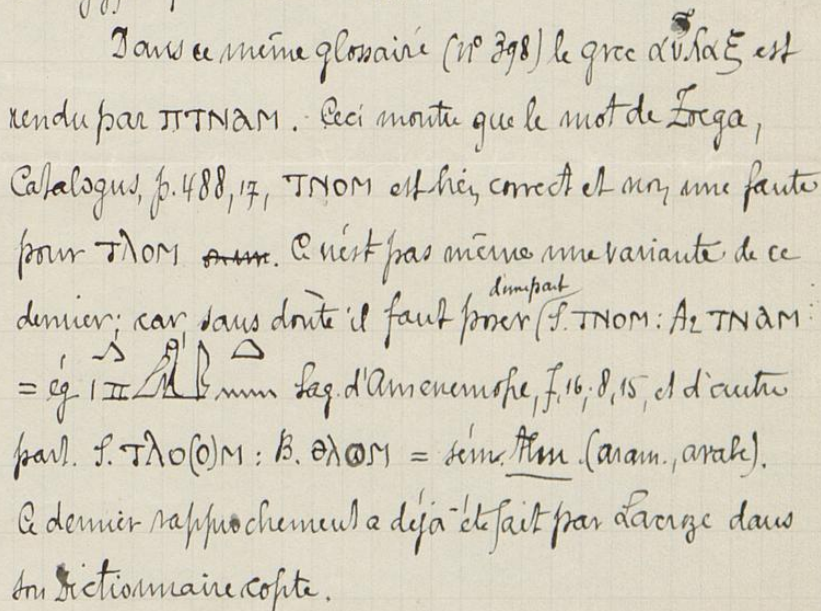 Dans ce même glossaire (nº 398) le grec αὖλαξ est
rendu par ⲡⲧⲛⲁⲙ. Ceci montre que le mot de Zoega,
Catalogus, p. 488, 17, ⲧⲛⲟⲙ est bien correct et non une faute
pour ⲧⲗⲟⲙ. Ce n'est pas même une variante de ce
dernier; car sans doute il faut poser (d'une part S. ⲧⲛⲟⲙ : A2 ⲧⲛⲁⲙ
= ég. Sag. d'Amenemope, f, 16, 8, 15, et d'autre
part. S. ⲧⲗⲟ(ⲟ)ⲙ : B. ⲑⲗⲱⲙ = sém. tlm (aram., arabe).
Ce dernier rapprochement a déjà été fait par Lacroze dans
son Dictionnaire copte.